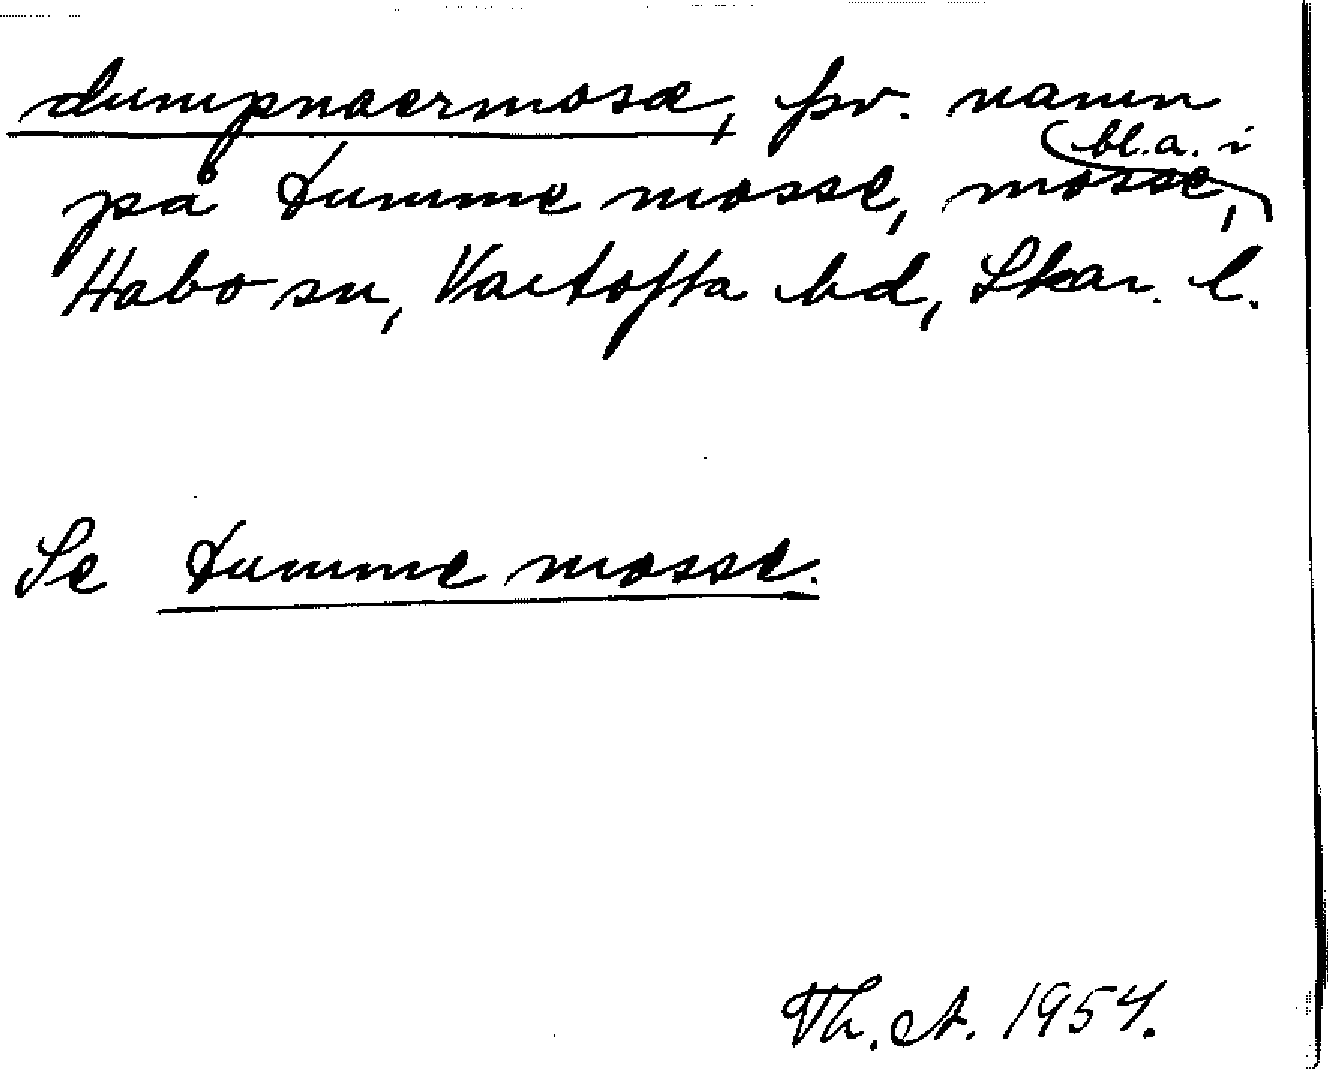 dumpnaermosæ, fsv. namn
på Dumme mosse, mosse, bl.a. i
Habo sn, Vartofta hd, Skar. l.
Se Dumme mosse.
Th. A. 1954.